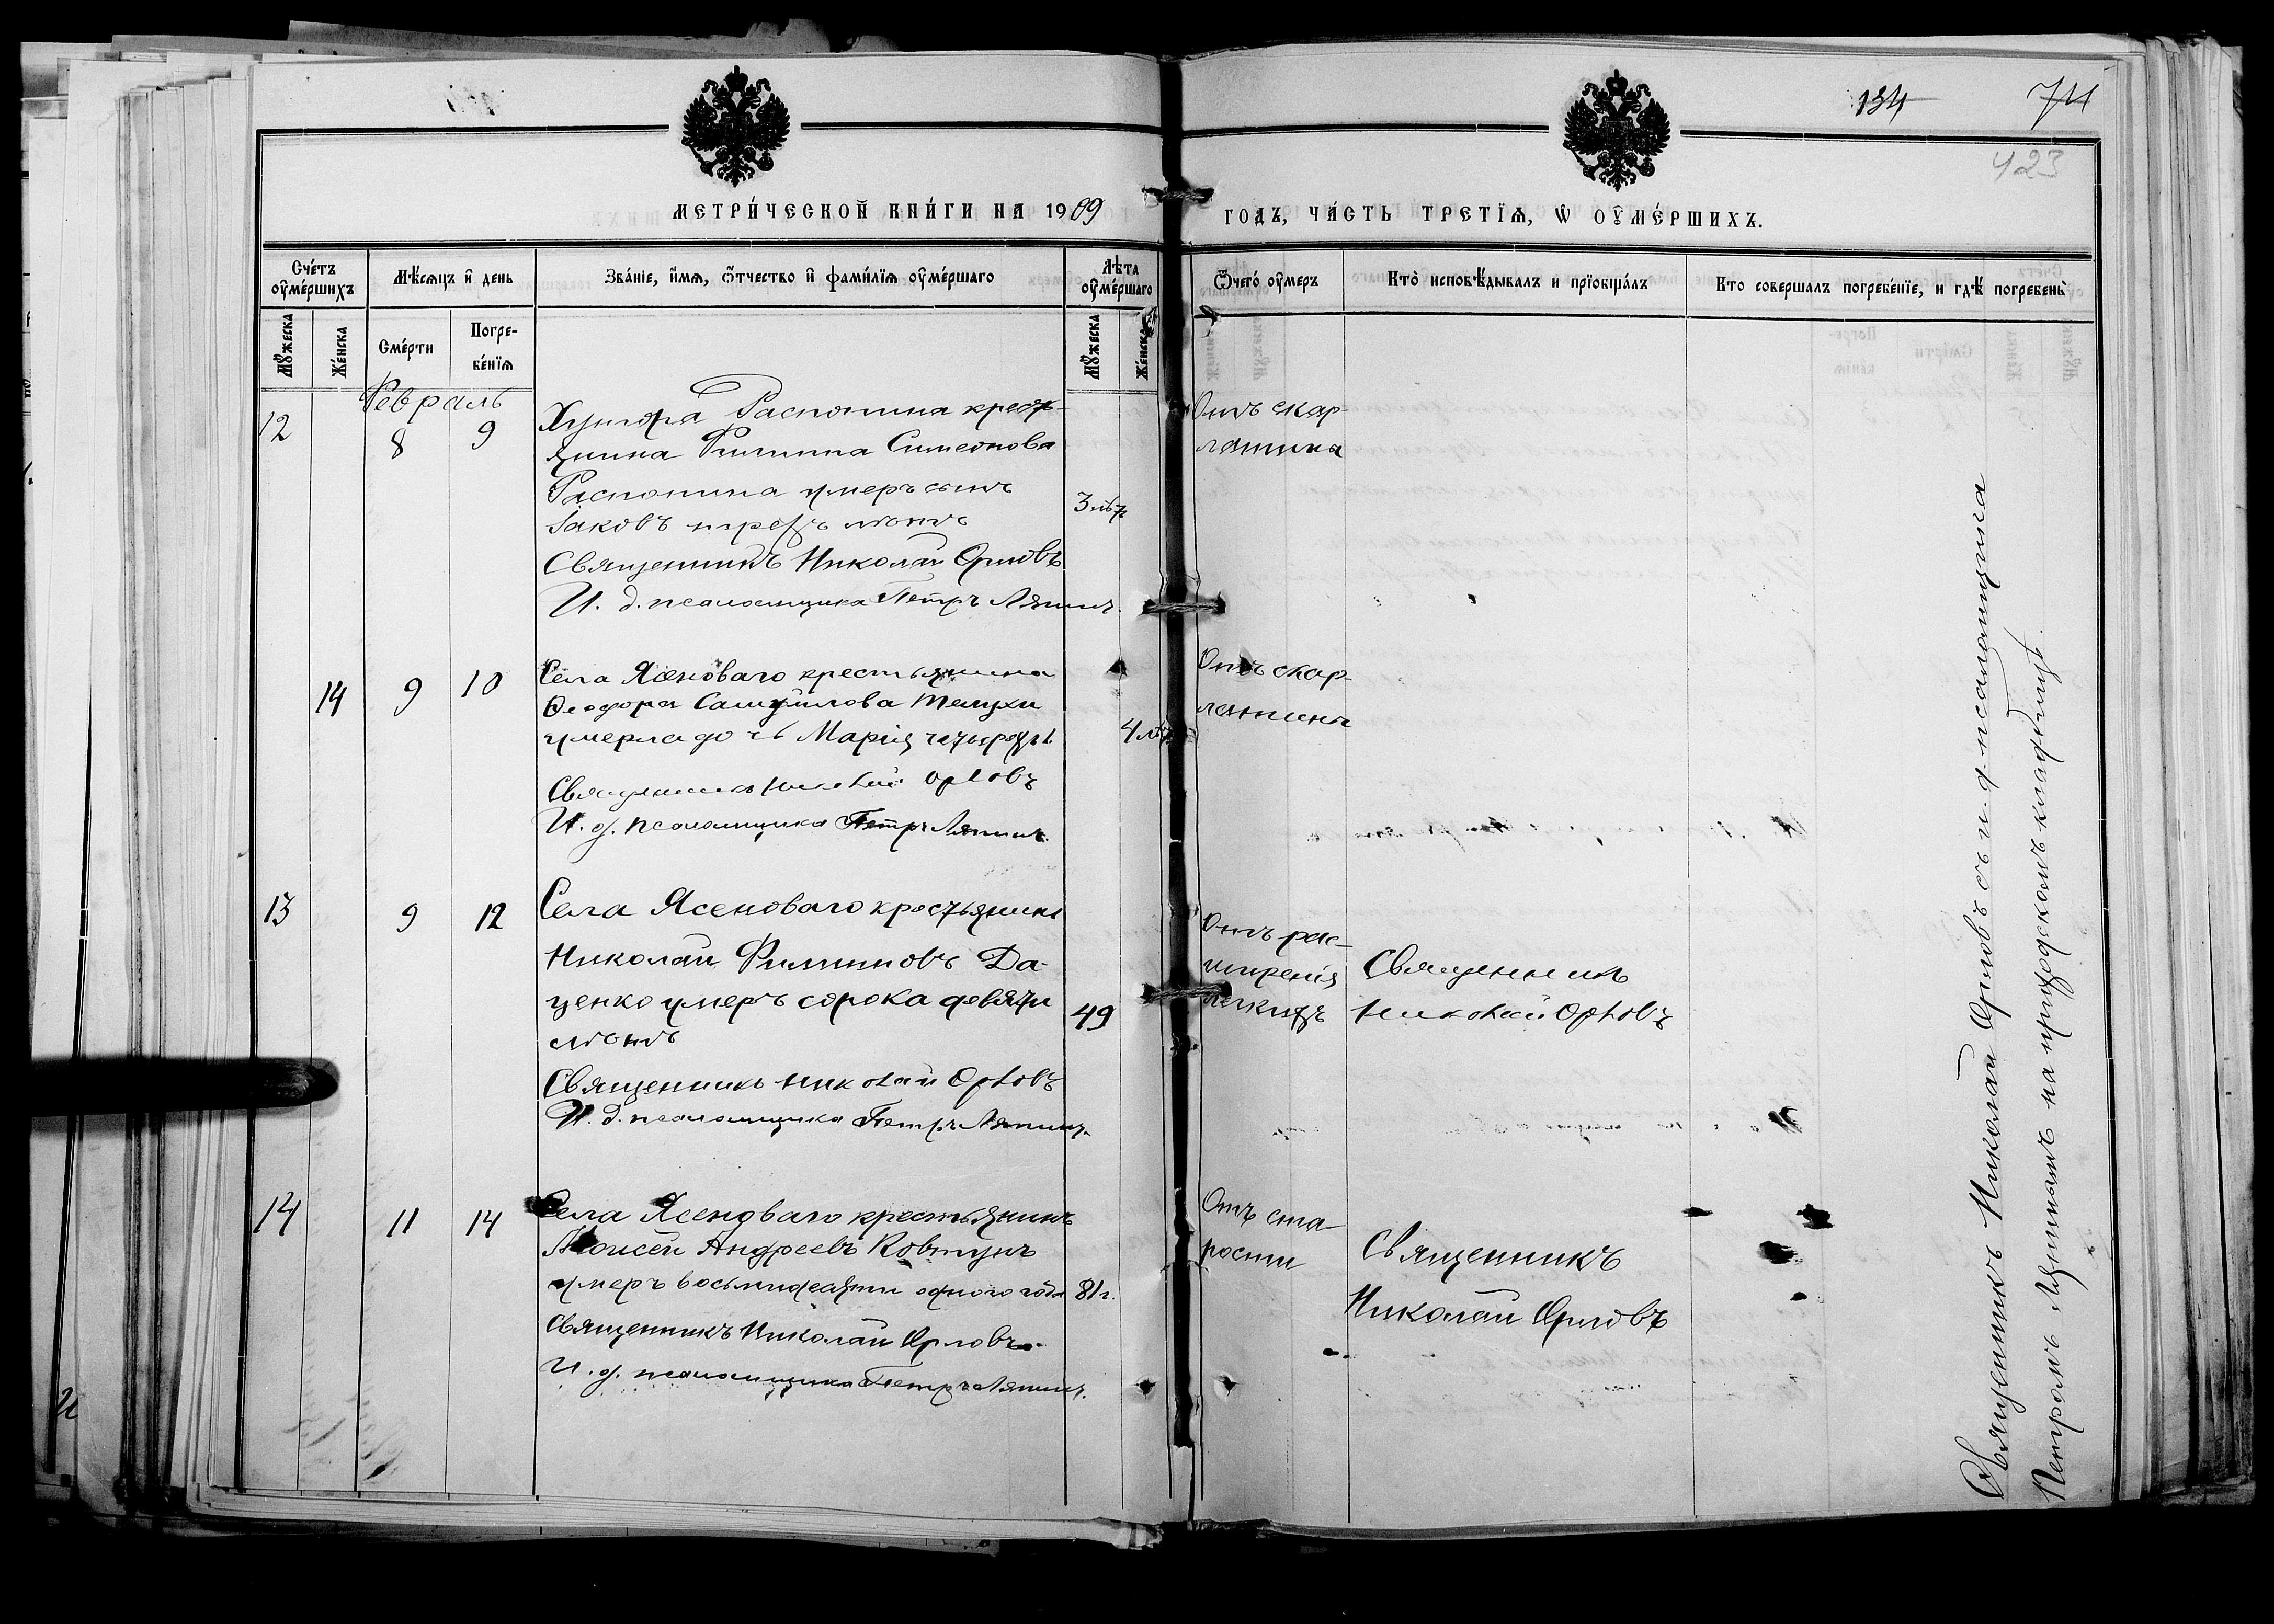 134 74
423
МЕТРИ́ЧЕСКОЙ КНИ́ГИ НА 1909 ГОДЪ, ЧА́СТЬ ТРЕТІѦ, Ѡ ОУМЕ́РШИХЪ.
Сче́тъ оуме́ршихъ
Мѣ́сяцъ и день
Зва́нїе, и́мѧ, ѿтчество и фами́лїѧ оуме́ршаго
Лѣта оуме́ршаго
Ѿчегѡ̀ оу́меръ
Кто̀ исповѣ́дывалъ и прїобща́лъ
Кто совершалъ погребе́нїе, и гдѣ̀ погребены̀
Мꙋ́жеска
Же́нска
Сме́рти
Погребе́нїѧ
Мꙋ́жеска
Же́нска
Февраль
12 8 9
Хутора Распопина кресть-
янина Филиппа Симеонова
Распопина умеръ сынъ
Іаковъ трехъ лѣтъ
3 лѣт
Священникъ Николай Орловъ
И. д. псаломщика Петръ Ляпинъ.
Отъ скар-
латины
14 9 10
Села Ясеноваго крестьянина
Ѳеодора Самуйлова
умерла дочь Марія четырехъ л.
4 лѣт
Священникъ Николай Орловъ
И. д. псаломщика Петръ Ляпинъ.
Отъ скар-
латины
13 9 12
Села Ясеноваго крестьянинъ
Николай Филипповъ Да-
ценко умеръ сорока девяти
лѣтъ
49
Священникъ Николай Орловъ
И. д. псаломщика Петръ Ляпинъ.
Отъ рас-
ширенія
легкихъ
Священникъ
Николай Орловъ
14 11 14
Села Ясеноваго крестьянинъ
Моисей Андреевъ Ковтунъ
умеръ восьмидесяти одного года
81 г.
Священникъ Николай Орловъ
И. д. псаломщика Петръ Ляпинъ.
Отъ ста-
рости
Священникъ
Николай Орловъ
Священникъ Николай Орловъ съ и. д. псаломщика
Петромъ Ляпинымъ на приходскомъ кладбищѣ.